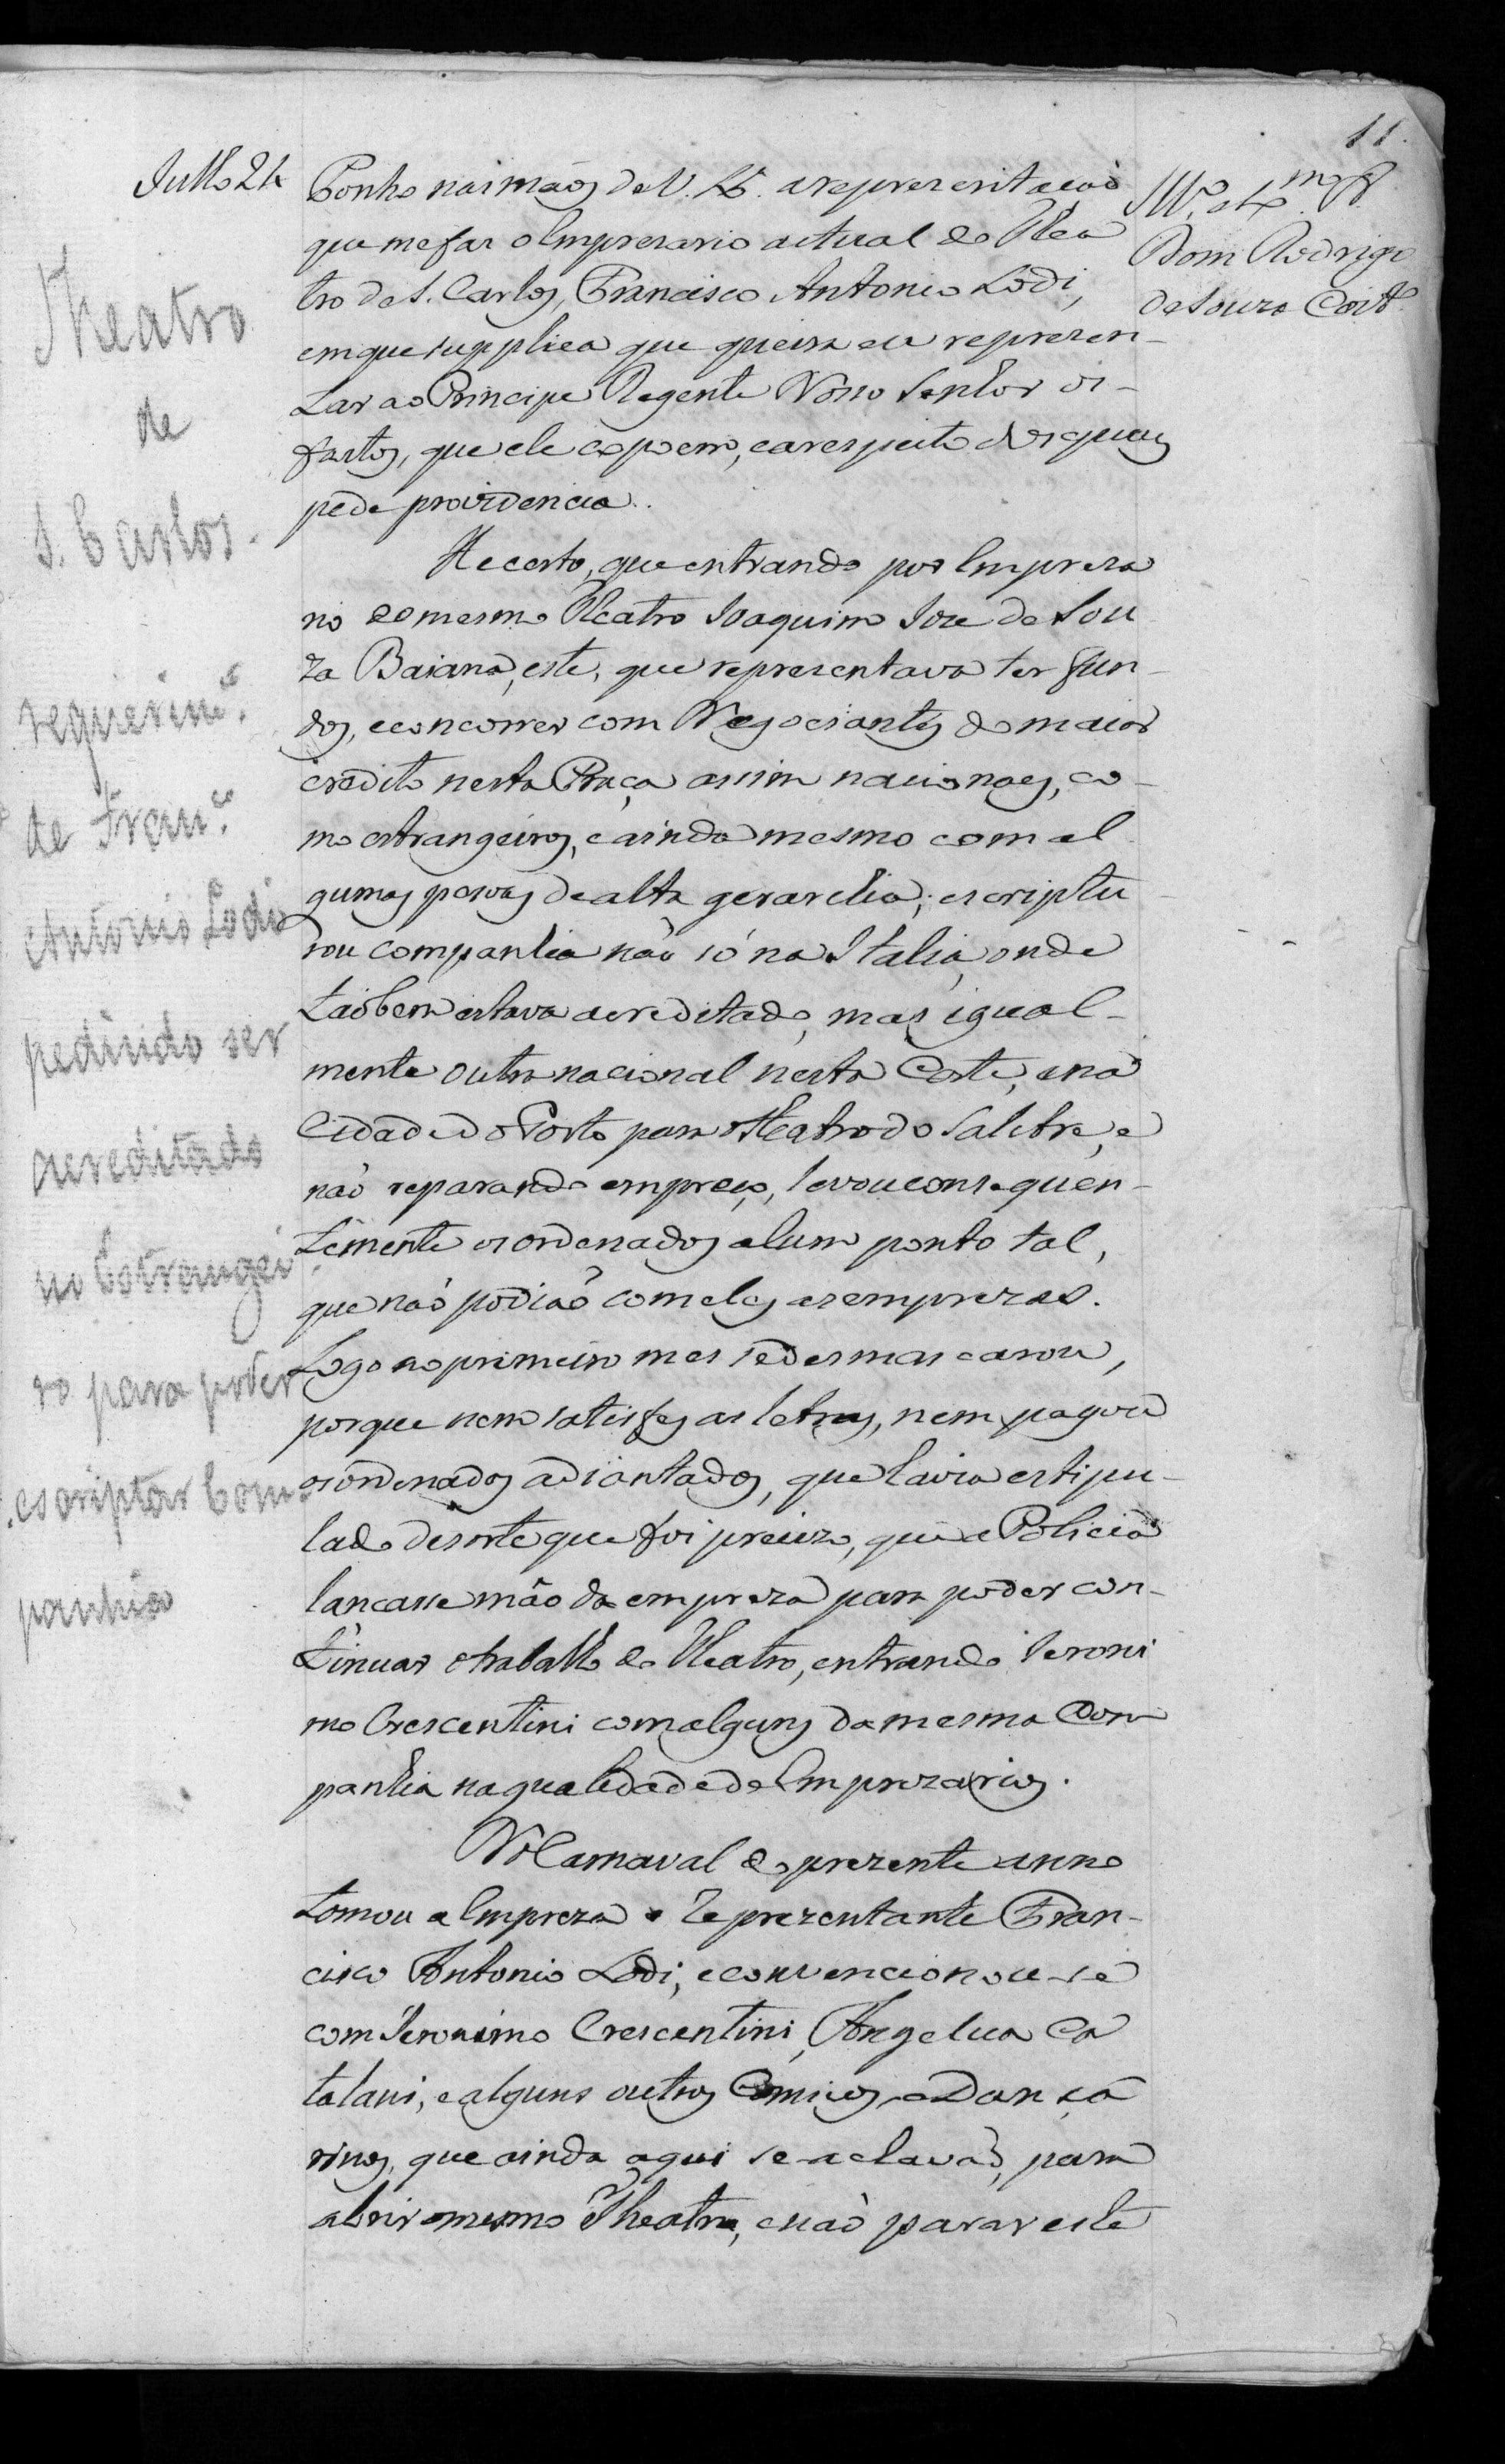 11.
Julho 24
Illmo e Exmo Sr.
Dom Rodrigo
de Souza Coutº
Ponho nas mãos de V. Ex. a reprezentação
que me faz o Emprezario actual do Thea
tro de S. Carlos, Francisco Antonio Lodi,
em que supplica que queira eu reprezen-
tar ao Principe Regente Nosso Senhor os
factos, que ele expoem, e a respeito dos quaes
pede providencia.
He certo, que entrando por Empreza
rio do mesmo Theatro Joaquim Joze de Sou
za Baiana, este, que reprezentava ter fun-
dos, e concorrer com Negociantes do maior
credito nesta Praça assim nacionaes, co-
mo estrangeiros, e ainda mesmo com al
gumas pesoas de alta gerarchia; escriptu
rou companhia não só na Italia, onde
taõbem estava acreditado, mas igual-
mente outra nacional nesta Corte, e na
Cidade do Porto para o Theatro do Salitre, e
não reparando em preços, levou conseguen-
temente os ordenados a hum ponto tal,
que não podiaõ com eles as emprezas.
Logo no primeiro mes se desmascarou,
porque nem satisfes as letras, nem pagou
os ordenados adiantados, que havia estipu-
lado de sorte que foi precizo, que a Policia
lancasse mão da empreza para poder con-
tinuar o trabalho do Theatro, entrando Jeroni
mo Crescentini com alguns da mesma Com
panhia na qualidade de Emprezarios.
No Carnaval do prezente anno
tomou a Empreza o Reprezentante Fran-
cisco Antonio Lodi, e convencionou-se
com Jeronimo Crescentini, Angelica Ca
talani, e alguns outros Comicos e Dança
rinos, que ainda aqui se achavaõ, para
abrir o mesmo Theatro, e naõ parar este
Theatro
de
S. Carlos.
requerimº
de Francº
Antonio Lodi
pedindo ser
acreditado
no Estrangei
ro para poder
escriptar Com-
panhia